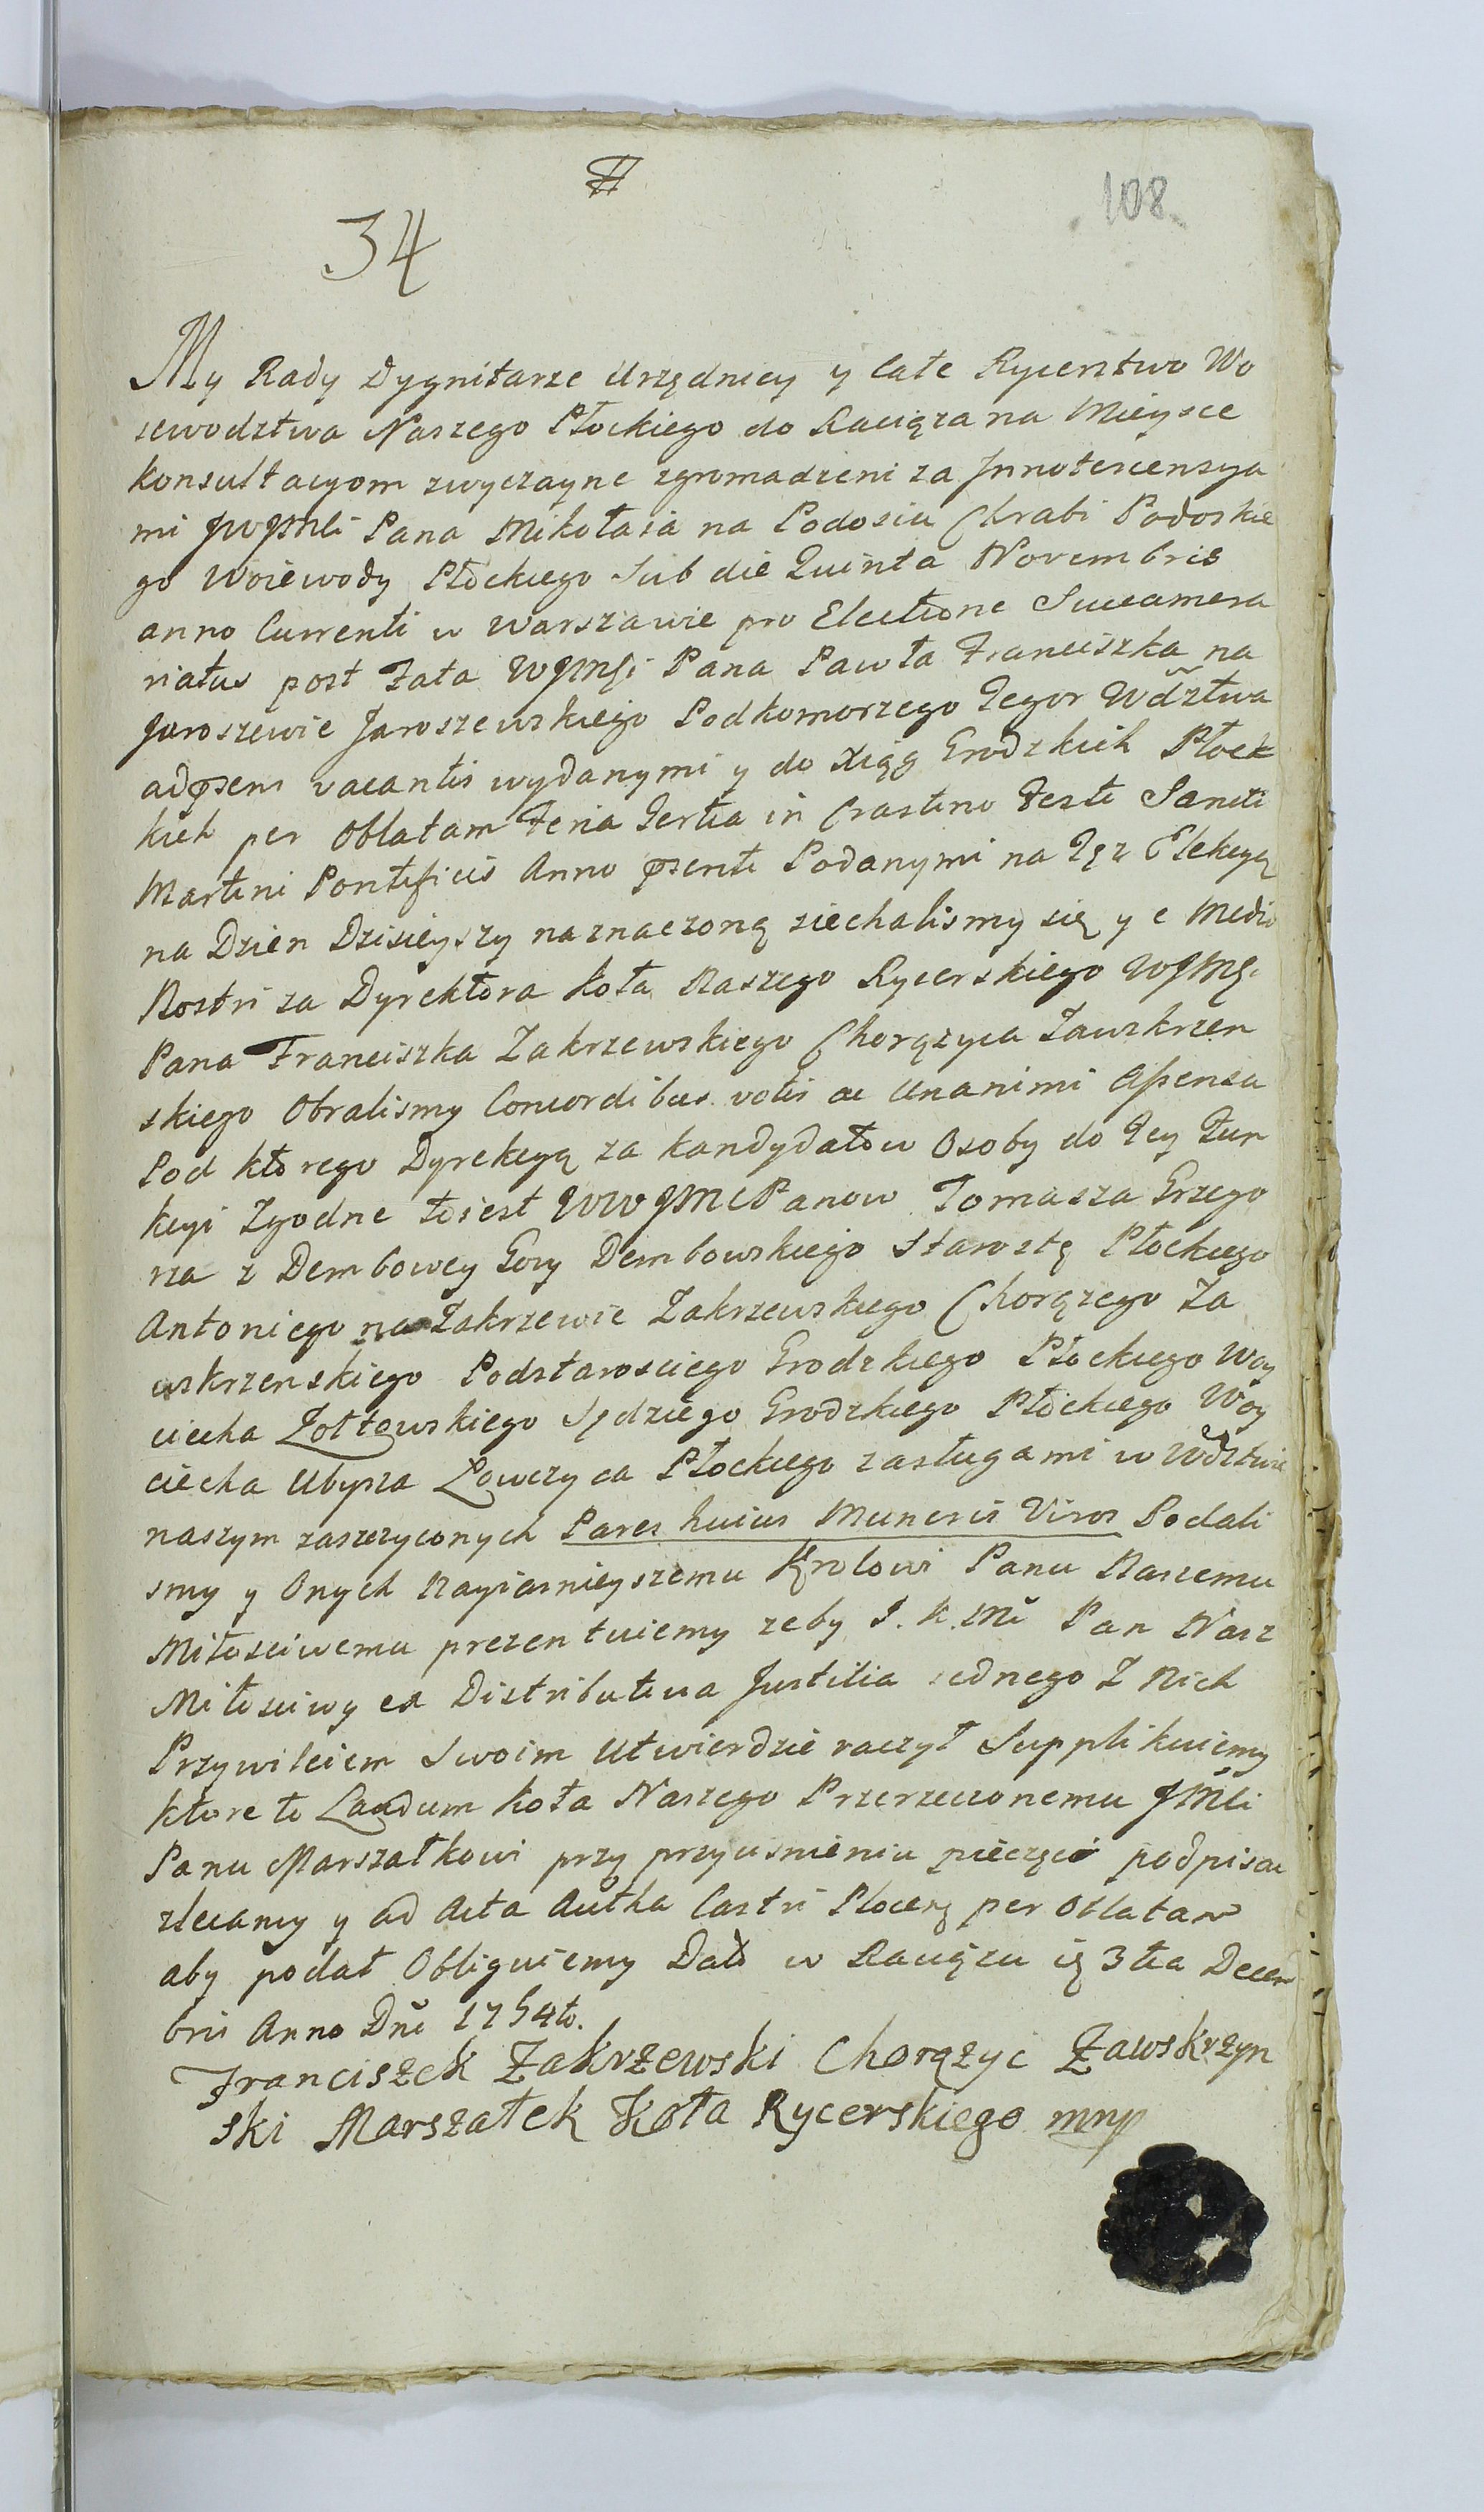 #
108
34
My Rady Dygnitarze Urzędnicy y Całe Rycerstwo Wo
iewodztwa Naszego Płockiego do Raciąża na Mieysce
konsultacyom zwyczayne zgromadzeni za Jnnotescensya
mi JWJMCi Pana Mikołaia na Podosiu Chrabi Podoskie
go Woiewody Płockiego Sub die Quinta Novembris
anno Currenti w Warszawie pro Electione Succamera
riatus post Fata WJMCi Pana Pawła Franciszka na
Jaroszewie Jaroszewskiego Podkomorzego Tegoz Wdztwa
ad psens vacantis wydanymi y do Xiąg Grodzkich Płock
kich per Oblatam Feria Tertia in Crastino Festi Sancti
Martini Pontificis Anno psenti Podanymi na Tęz Elekcyą
na Dzien Dzisieyszy naznaczoną ziechalismy się y e Medio
Nostri za Dyrektora koła Naszego Rycerskiego WJMCi
Pana Franciszka Zakrzewskiego Chorązyca Zawskrzen
skiego Obralismy Concordibus votis ac Unanimi Assensu
Pod ktorego Dyrekcyą za kandydatow Osoby do Tey Fun
kcyi Zgodne to iest WWJMCPanow Tomasza Grzego
rza z Dembowey Gory Dembowskiego Starostę Płockiego
Antoniego na Zakrzewie Zakrzewskiego Chorązego Za
wskrzenskiego Podstarosciego Grodzkiego Płockiego Woy
ciecha Zołtowskiego Sędziego Grodzkiego Płockiego Woy
ciecha Ubysza Łowczyca Płockiego zasługami w Wdztwie
naszym zaszczyconych Pares huius Muneris Viros Podali
smy y Onych Nayiasnieyszemu Krolowi Panu Naszemu
Miłosciwemu prezentuiemy zeby J.K.Mć Pan Nasz
Miłosciwy ex Distributiva Justitia iednego Z Nich
Przywileiem Swoim Utwierdzic raczył Supplikuiemy
ktore to Laudum koła Naszego Przerzeczonemu JMCi
Panu Marszałkowi przy przycisnieniu pieczęci podpisac
zlecamy y ad Acta Autha Castri Plocen per Oblatam
aby podał Obliguiemy Datt w Raciązu ię 3tia Decem
bris Anno Dni 1754to.
Franciszek Zakrzewski Chorązyc Zawskrzyn
ski Marszałek Koła Rycerskiego mnp